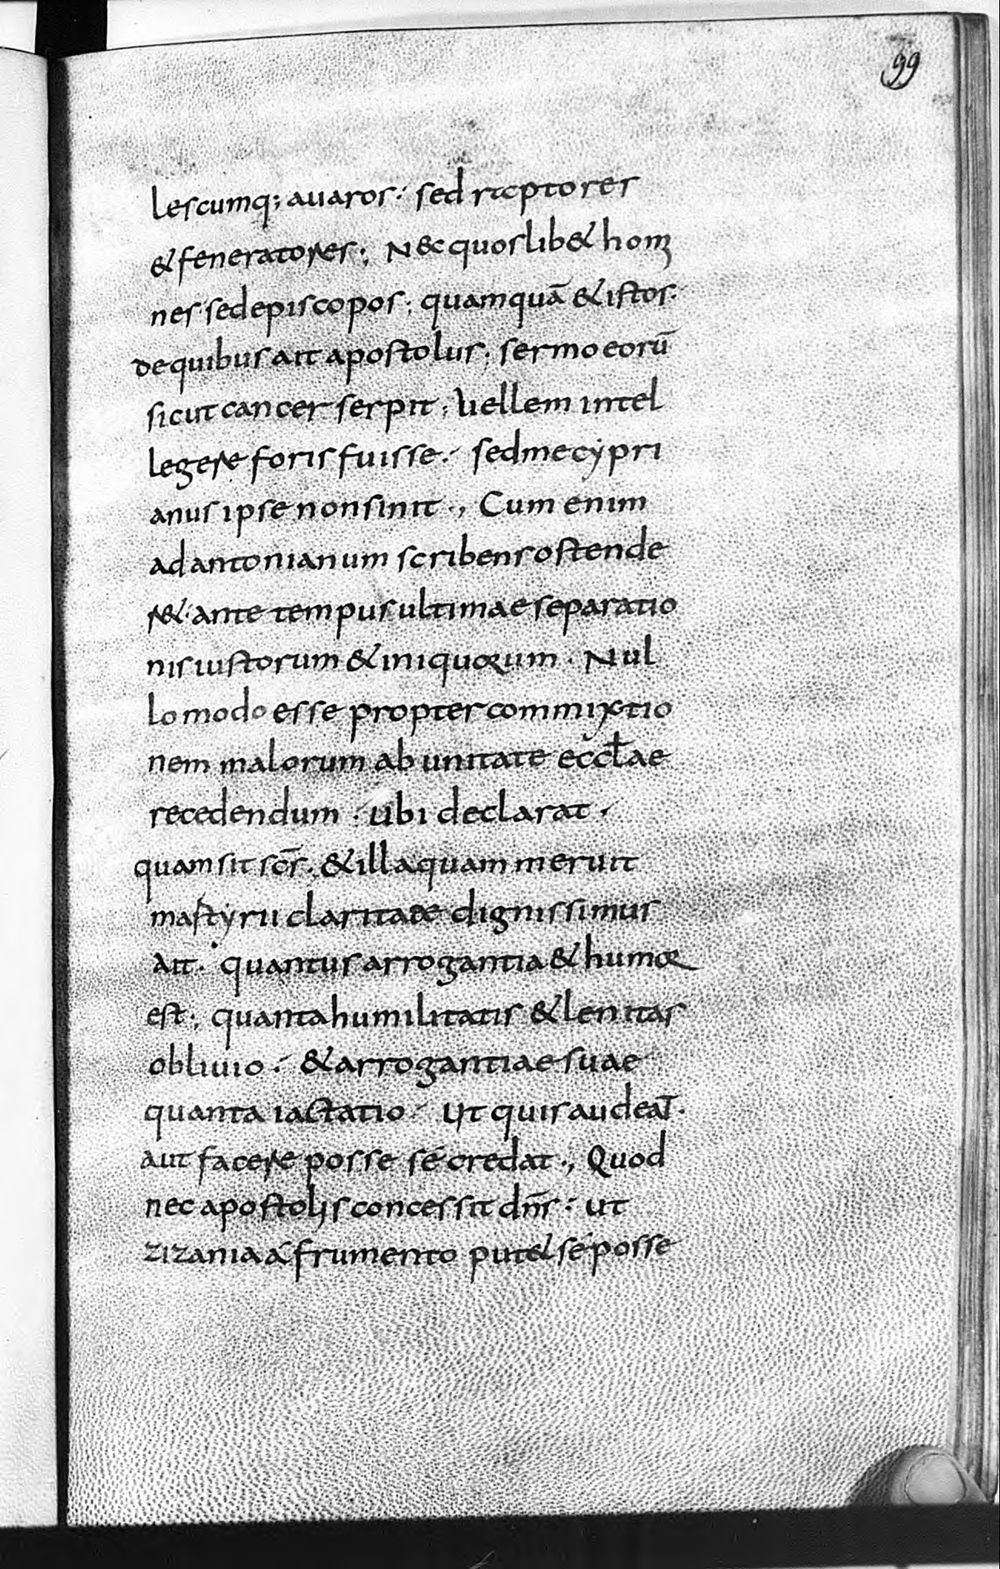 99
lescumq; auaros: sed raptores
& feneratores; Nec quoslib& homi
nes sed episcopos; quamquā & istos.
de quibus ait apostolus; sermo eorū
sicut cancer serpit; Uellem intel
legere foris fuisse. sed me cypri
anus ipse non sinit., Cum enim
ad antonianum scribens ostende
r& ante tempus ultimae separatio
nis iustorum & iniquorum. Nul
lo modo esse propter commixtio
nem malorum ab unitate eccłae
recedendum. ubi declarat.
quam sit scs̄. & illa quam meruit
martyrii claritate dignissimus
Ait. quantus arrogantia & humor
est; quanta humilitatis & lenitas
obliuio. & arrogantiae suae
quanta iactatio. Ut quis audeat.
aut facere posse sé credat., Quod
nec apostolis concessit dn̄s: ut
zizania á frumento put& sé posse